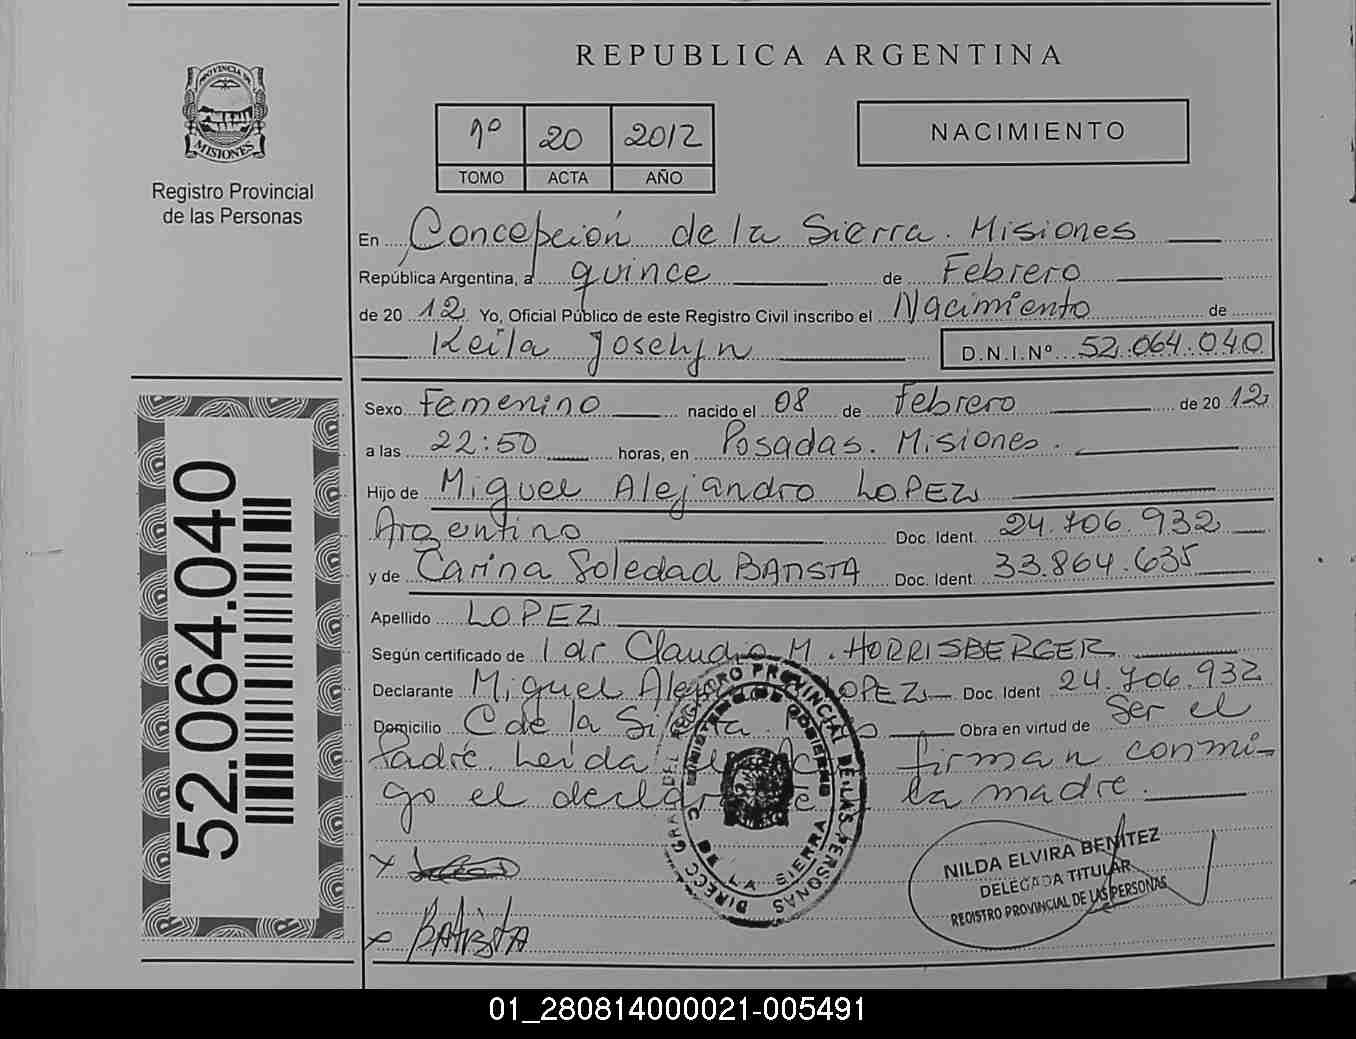 REPUBLICA ARGENTINA
PROVINCIA DE
MISIONES
Registro Provincial
de las Personas
1º 20 2012
TOMO ACTA AÑO
NACIMIENTO
En Concepción de la Sierra. Misiones
República Argentina, a quince de Febrero
de 20 12 Yo, Oficial Público de este Registro Civil inscribo el Nacimiento de
Keila Joselyn D.N.I.Nº 52.064.040
Sexo Femenino nacido el 08 de Febrero de 20 12
a las 22:50 horas, en Posadas. Misiones.
Hijo de Miguel Alejandro LOPEZ
Argentino Doc. Ident. 24.706.932
y de Carina Soledad BATISTA Doc. Ident. 33.864.635
Apellido LOPEZ
Según certificado de Claudio M. HORRISBERGER
Declarante Miguel LOPEZ Doc. Ident 24.706.932
Domicilio C de la Sierra Obra en virtud de Ser el
Padre. Leida firman conmi-
go el la madre.
DIRECC GRAL DEL REGISTRO PROVINCIAL DE LAS PERSONAS
MINISTERIO DE GOBIERNO
C DE LA SIERRA
NILDA ELVIRA BENITEZ
DELEGADA TITULAR
REGISTRO PROVINCIAL DE LAS PERSONAS
x
x Batista
52.064.040
01_280814000021-005491